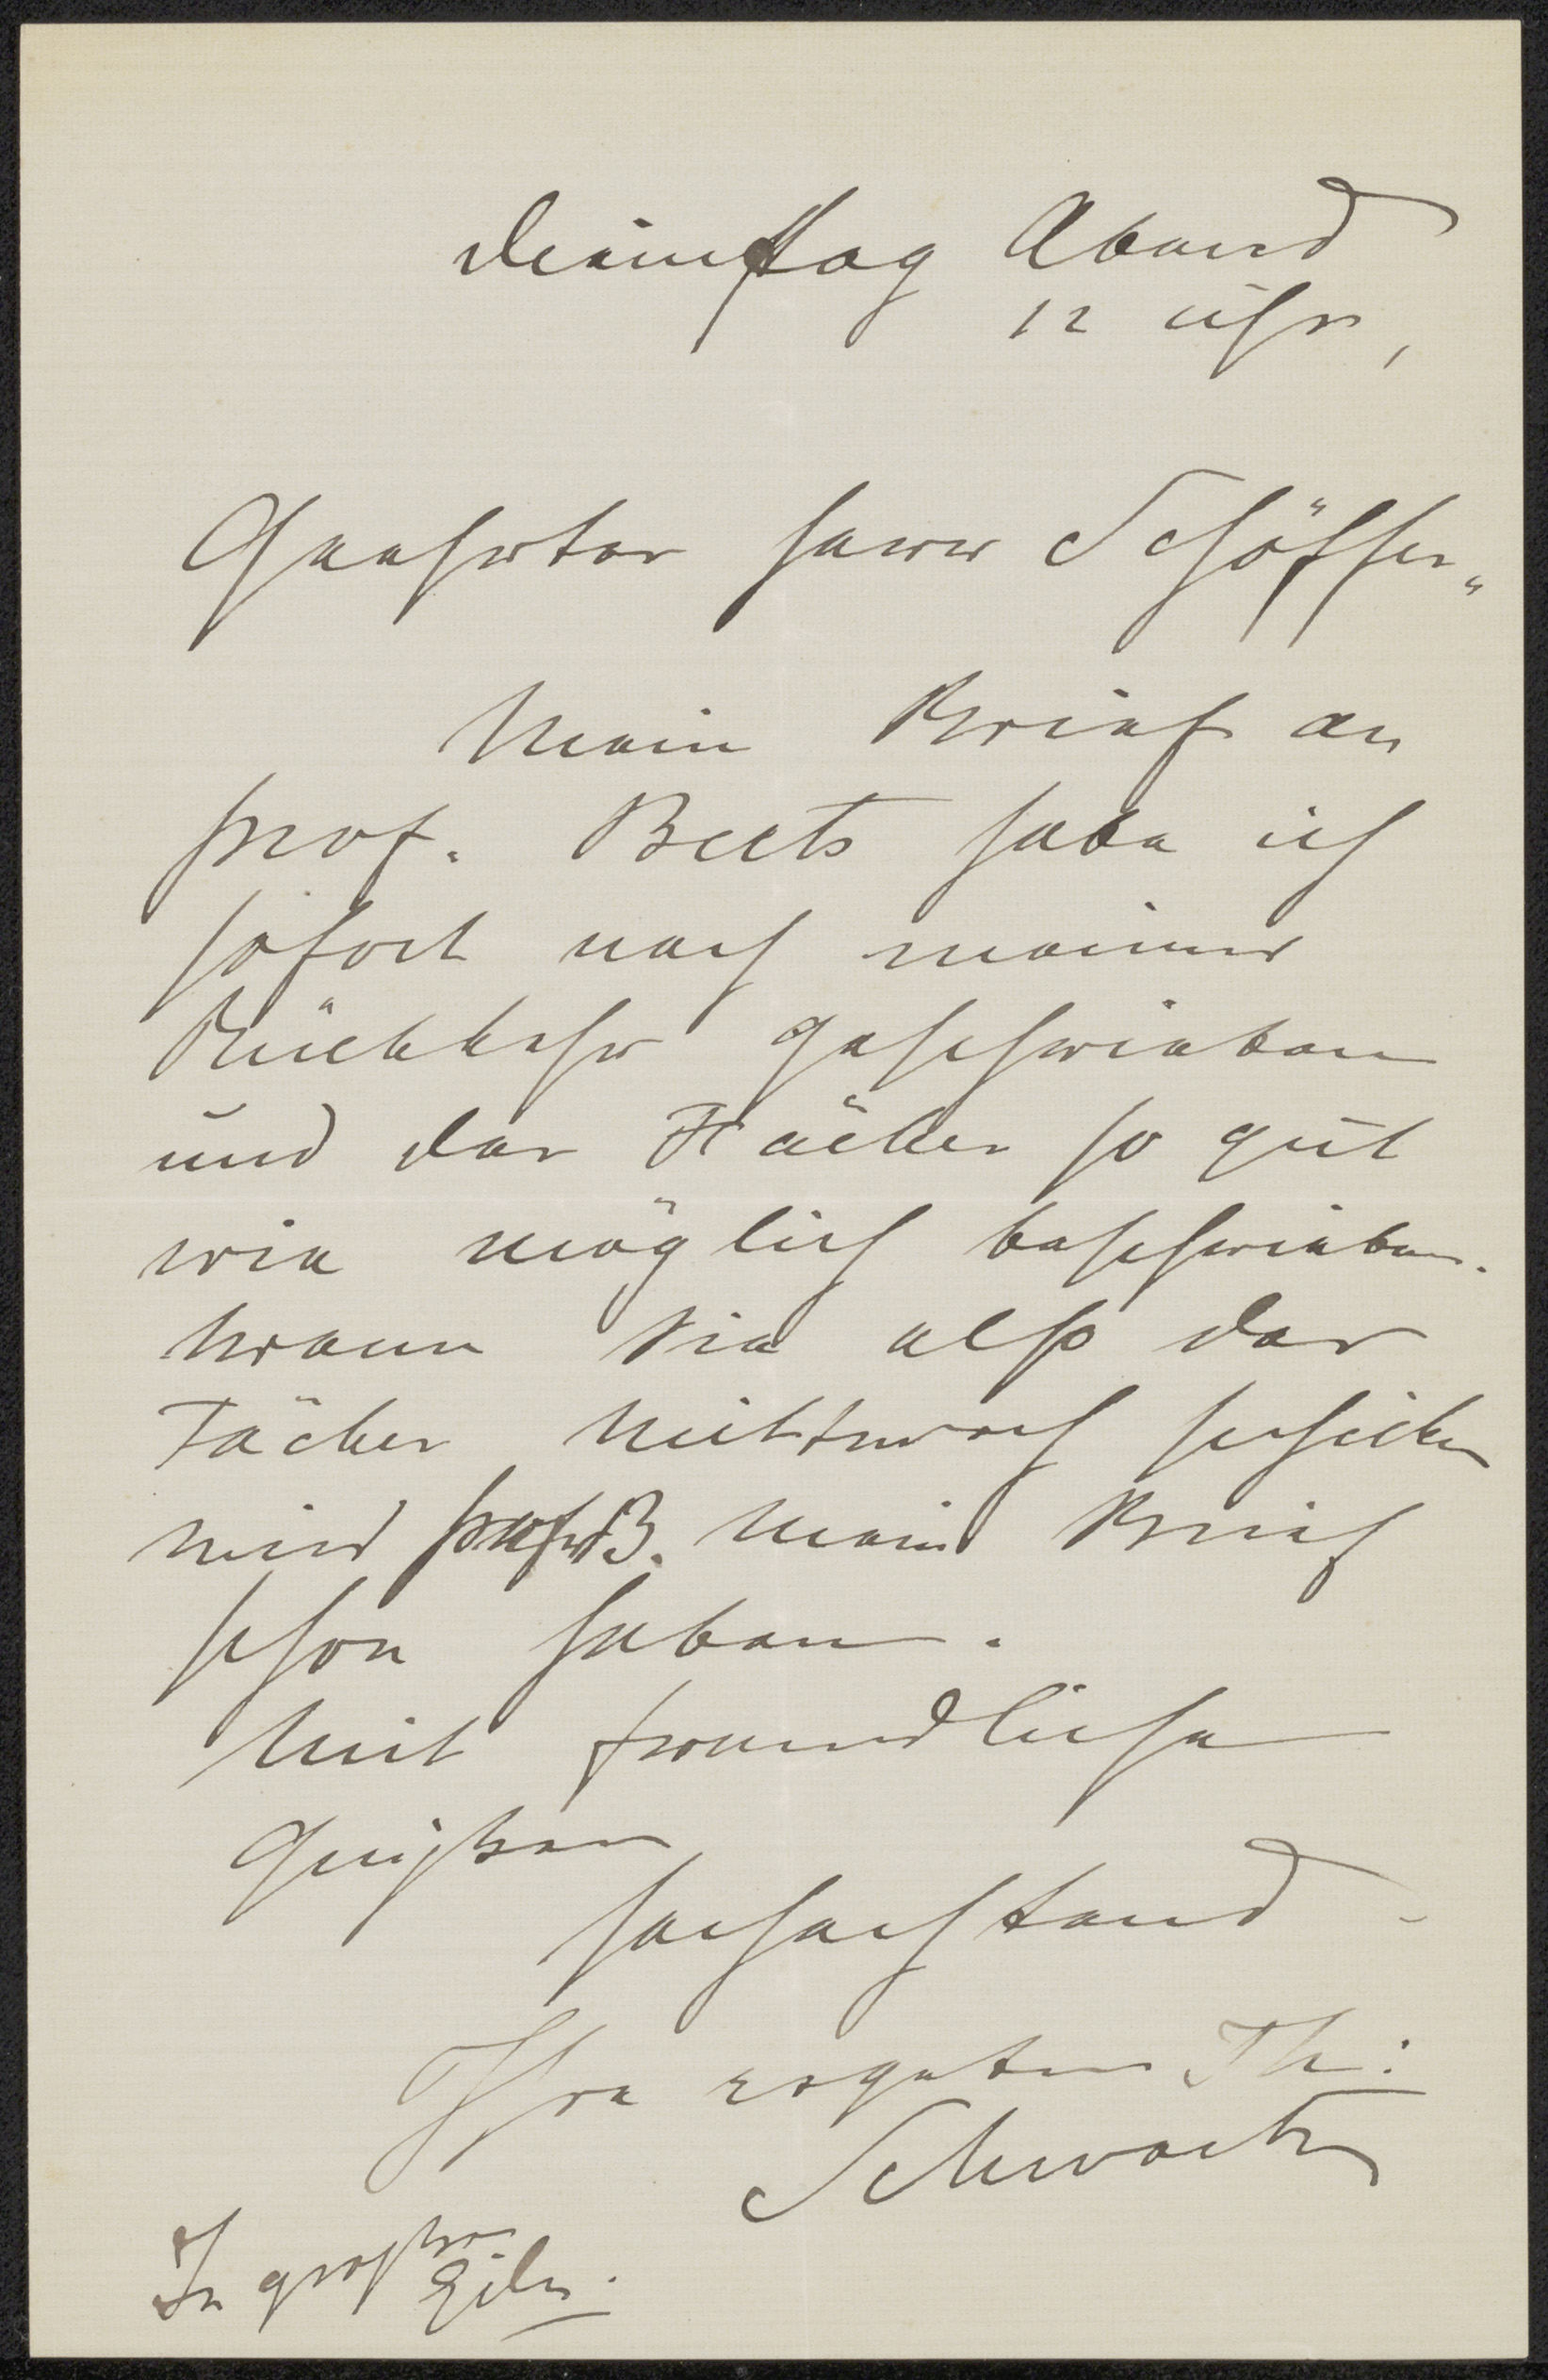 Deinstag Abend
12 Uhr,
Geehrter Herr Schöffer„
Mein Brief an
prof. Beets habe ich
sofort nach meiner
Rückkehr geschrieben
und der Fächer so gut
wie möglich beschrieben.
Wenn Sie also der
Fächer Mittwoch schicken
wird prof B. mein Brief
schon haben.
Mit freundliche
Grüßen
hochachtend
Ihre ergebene Th:
Schwartze
In großer
Eile.